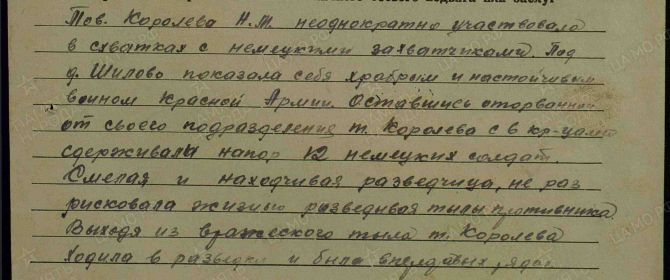 Тов. Королева Н.М. неоднократно участвовала
в схватках с немецкими захватчиками. Под
д. Шилово показала себя храбрым и настойчивым
воином Красной Армии. Оставшись оторванной
от своего подразделения т. Королева с 6 кр-цами
сдерживала напор 12 немецких солдат.
Смелая и находчивая разведчица, не раз
рисковала жизнью разведивая тылы противника.
Выходя из вражеского тыла т. Королева
ходила в разведки и была в передовых рядах